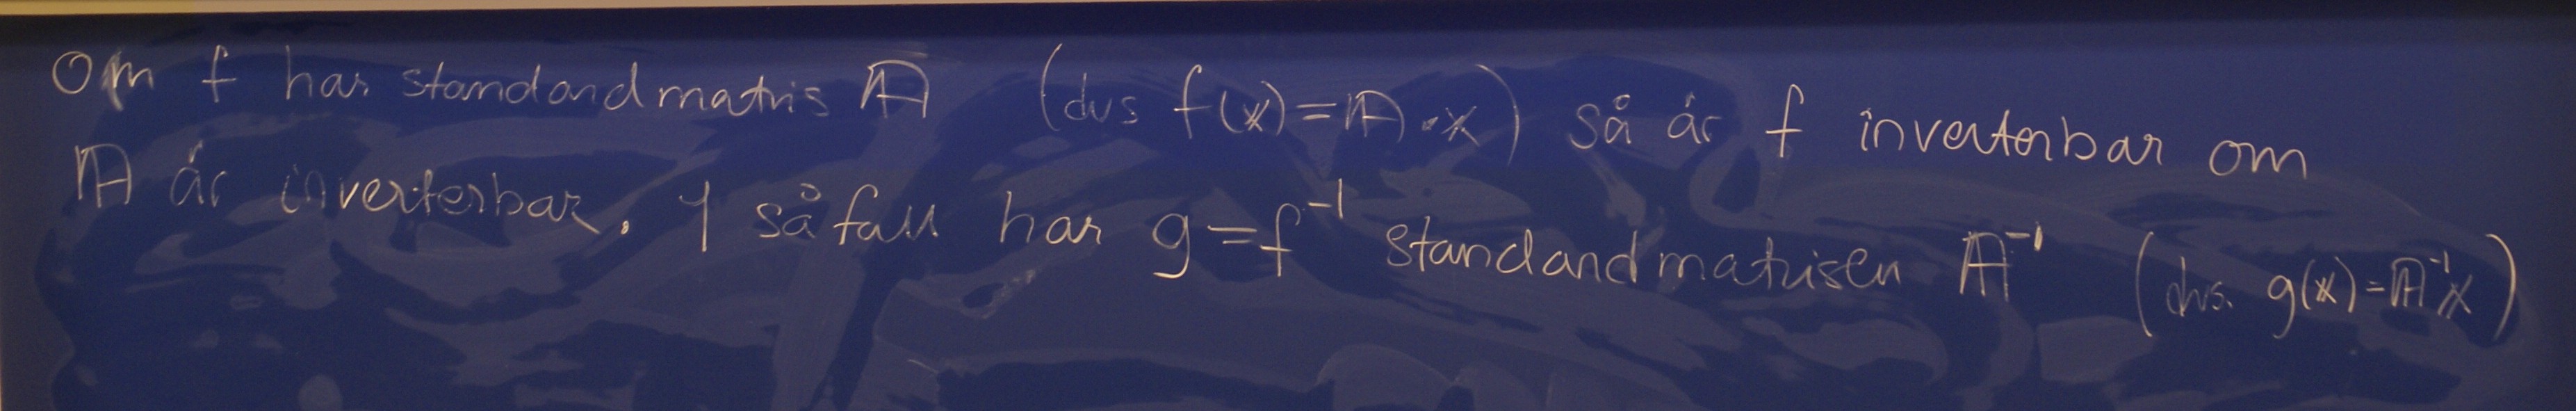 Om f har standardmatris 𝔸 (dvs f(𝕩)=𝔸·𝕩) så är f inverterbar om
𝔸 är inverterbar. I så fall har g=f⁻¹ standardmatrisen 𝔸⁻¹ (dvs. g(𝕩)=𝔸⁻¹𝕩)